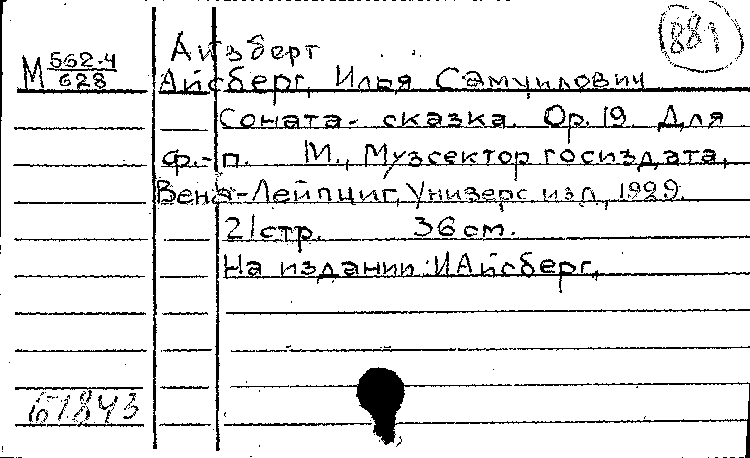 881
Айзберг
М 562.4/628
Айсберг, Илья Самуилович
Соната- сказка. Op. 19. Для
ф.-п. М., Музсектор госиздата,
Вена-Лейпциг, Универс. изд., 1929.
21стр. 36см.
На издании: И Айсберг.
61843